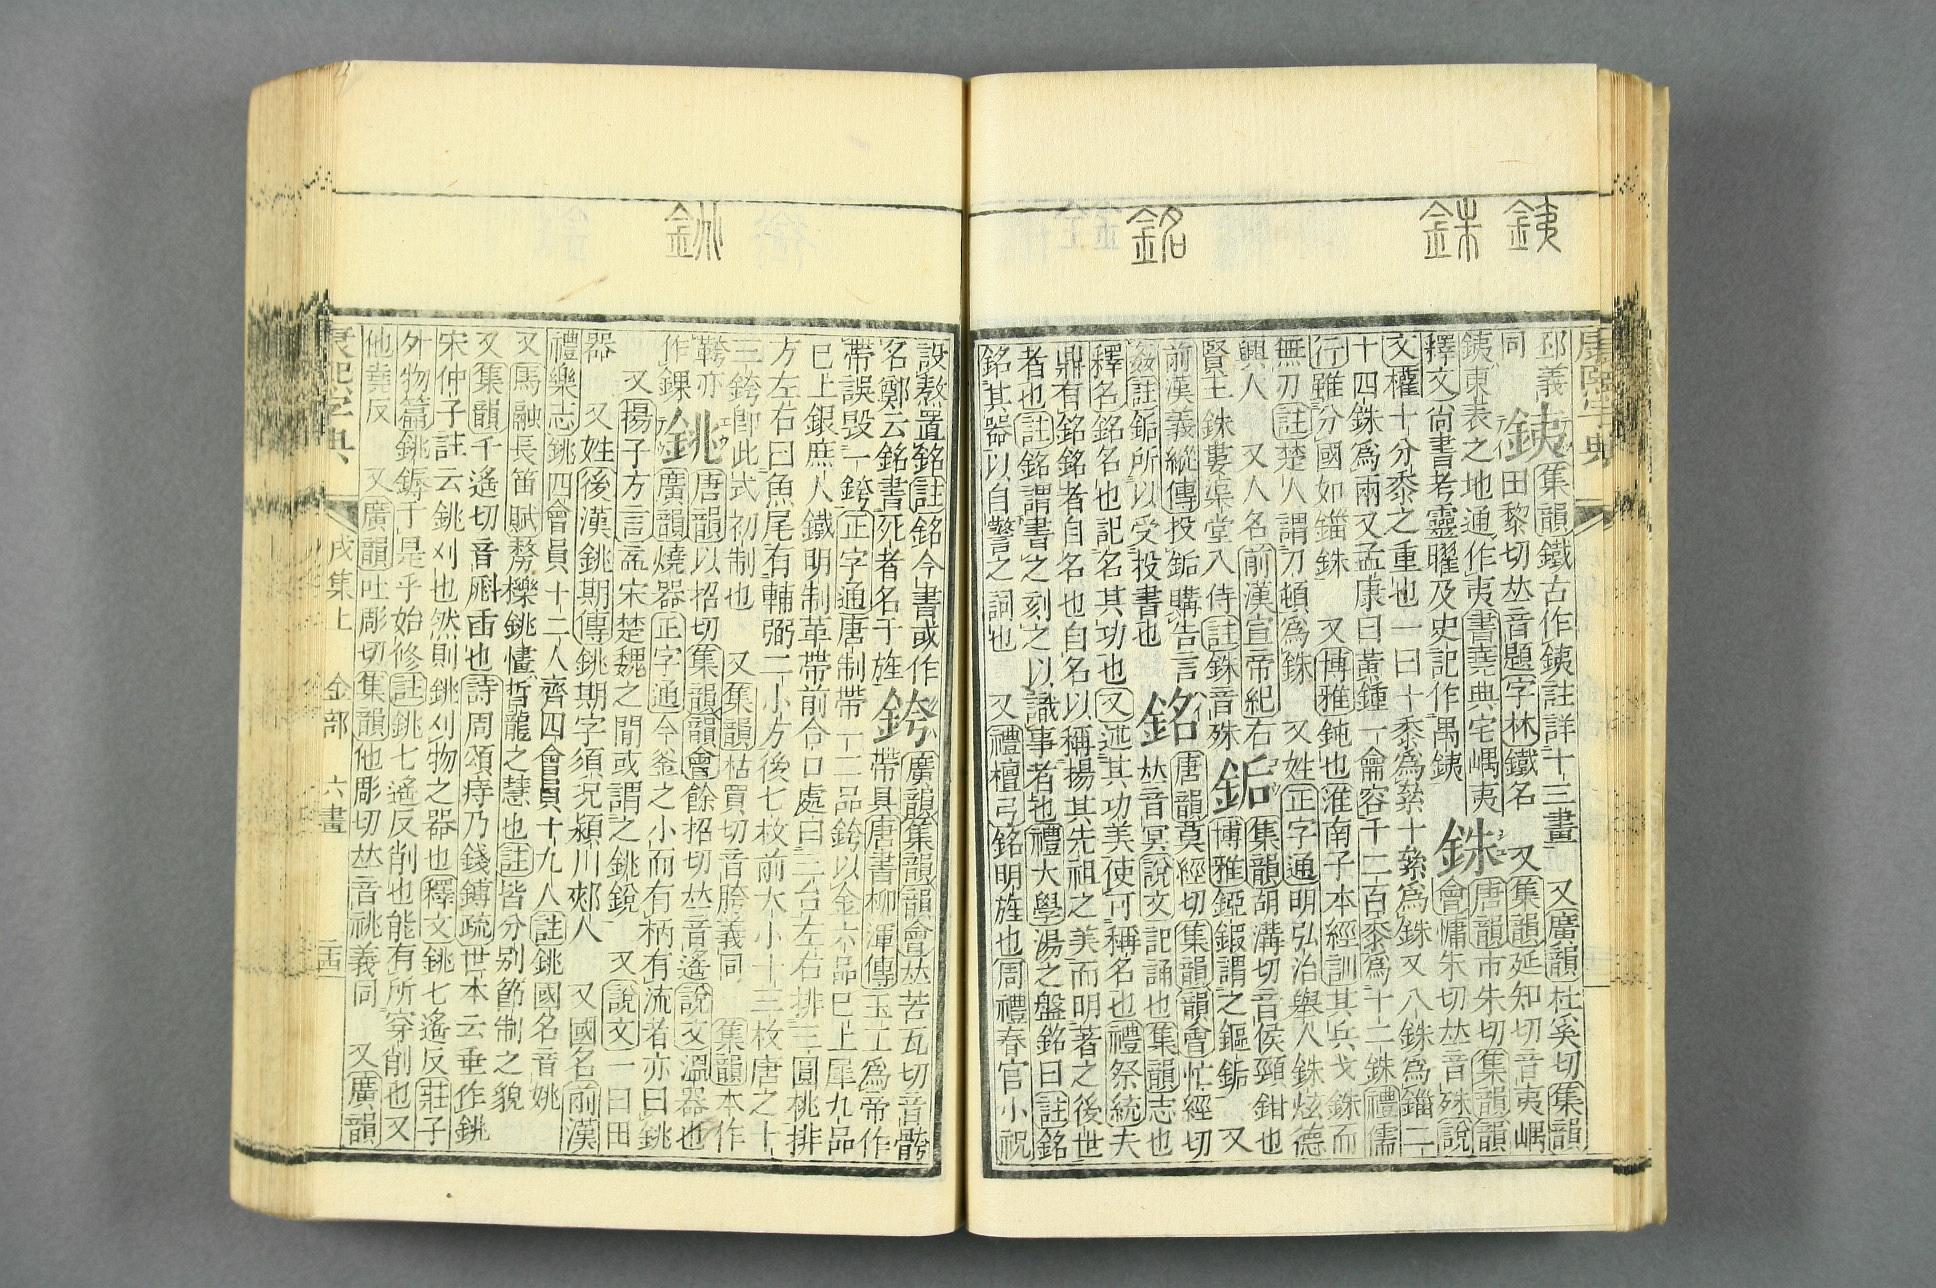 銕 銖 銘
康熙字典
邳義 又廣韻杜奚切集韻
同 銕 集韻鐵古作銕註詳十三畫
田黎切𠀤音題字林鐵名 又集韻延知切音夷嵎
銕東表之地通作夷書堯典宅嵎夷
釋文尚書考靈曜及史記作禺銕 銖 唐韻市朱切集韻韻
會慵朱切𠀤音殊說
文權十分黍之重也一曰十黍爲絫十絫爲銖又八銖爲錙二
十四銖爲兩又孟康曰黃鍾一龠容千二百黍爲十二銖禮儒
行雖分國如錙銖 又博雅鈍也淮南子本經訓其兵戈銖而
無刃註楚人謂刀頓爲銖 又姓正字通明弘治舉人銖炫德
興人 又人名前漢宣帝紀右
賢王銖婁渠堂入侍註銖音殊 銗 集韻胡溝切音侯頸鉗也
博雅錏鍜謂之鏂銗 又
前漢義縱傳投銗購告言
姦註銗所以受投書也 銘 唐韻莫經切集韻韻會忙經切
𠀤音冥說文記誦也集韻志也
釋名銘名也記名其功也又述其功美使可稱名也禮祭統夫
鼎有銘銘者自名也自名以稱揚其先祖之美而明著之後世
者也註銘謂書之刻之以識事者也禮大學湯之盤銘曰註銘
銘其器以自警之詞也 又禮檀弓銘明旌也周禮春官小祝
銚
設熬置銘註銘今書或作
名鄭云銘書死者名于旌 銙 廣韻集韻韻會𠀤苦瓦切音骻
帶具唐書柳渾傳玉工爲帝作
帶誤毀一銙正字通唐制帶一二品銙以金六品已上犀九品
已上銀庶人鐵明制革帶前合口處曰三台左右排三圓桃排
方左右曰魚尾有輔弼二小方後七枚前大小十三枚唐之十
三銙卽此式初制也 又集韻枯買切音胯義同 集韻本作
䯞亦
作錁 銚 唐韻以招切集韻韻會餘招切𠀤音遙說文溫器也
廣韻燒器正字通今釜之小而有柄有流者亦曰銚
又揚子方言盂宋楚魏之閒或謂之銚銳 又說文一曰田
器 又姓後漢銚期傳銚期字須況潁川郟人 又國名前漢
禮樂志銚四會員十二人齊四會員十九人註銚國名音姚
又馬融長笛賦㟉櫟銚㦎晢龍之慧也註皆分別節制之貌
又集韻千遙切音㡜臿也詩周頌庤乃錢鎛疏世本云垂作銚
宋仲子註云銚刈也然則銚刈物之器也釋文銚七遙反莊子
外物篇銚鎒于是乎始修註銚七遙反削也能有所穿削也又
他堯反 又廣韻吐彫切集韻他彫切𠀤音祧義同 又廣韻
康熙字典 戌集上 金部 六畫 一西